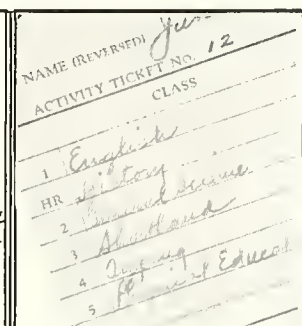 NAME (REVERSED)
ACTIVITY TICKET NO. 12
CLASS
1 English
HR History
2 General Science
3 Shorthand
4 Typing
5 Physical Educat